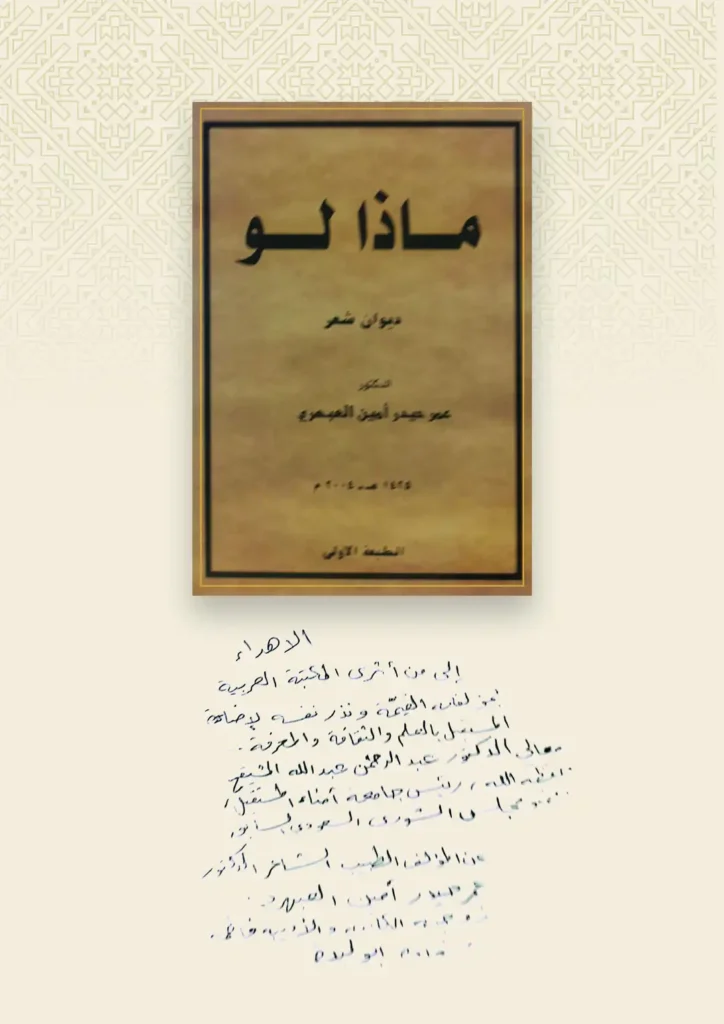 ماذا لو
ديوان شعر
الدكتور
عمر حيدر أمين
١٤٢٥ هـ ٢٠٠٤ م
الطبعة الأولى
الاهداء
إلى من أثرى المكتبة العربية
القيمة ونذر نفسه لإضاءة
المستقبل بالعلم والثقافة والمعرفة.
معالي الدكتور عبد الرحمن عبد الله المشيقح
حفظه الله، رئيس جامعة المستقبل
مجلس الشورى السعودي السابق
المؤلف الطبيب الشاعر الدكتور
عمر حيدر أمين